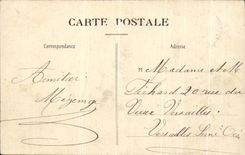 CARTE POSTALE
Correspondance
Adresse
Madame et M
20 rue du
Vieux Versailles
Versailles Seine Oise